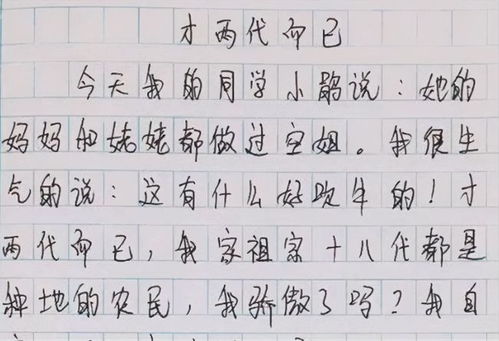 才两代而已
今天我的同学小鹃说：她的
妈妈和姥姥都做过空姐。我很生
气的说：这有什么好吹牛的！才
两代而已，我家祖家十八代都是
种地的农民，我骄傲了吗？我自